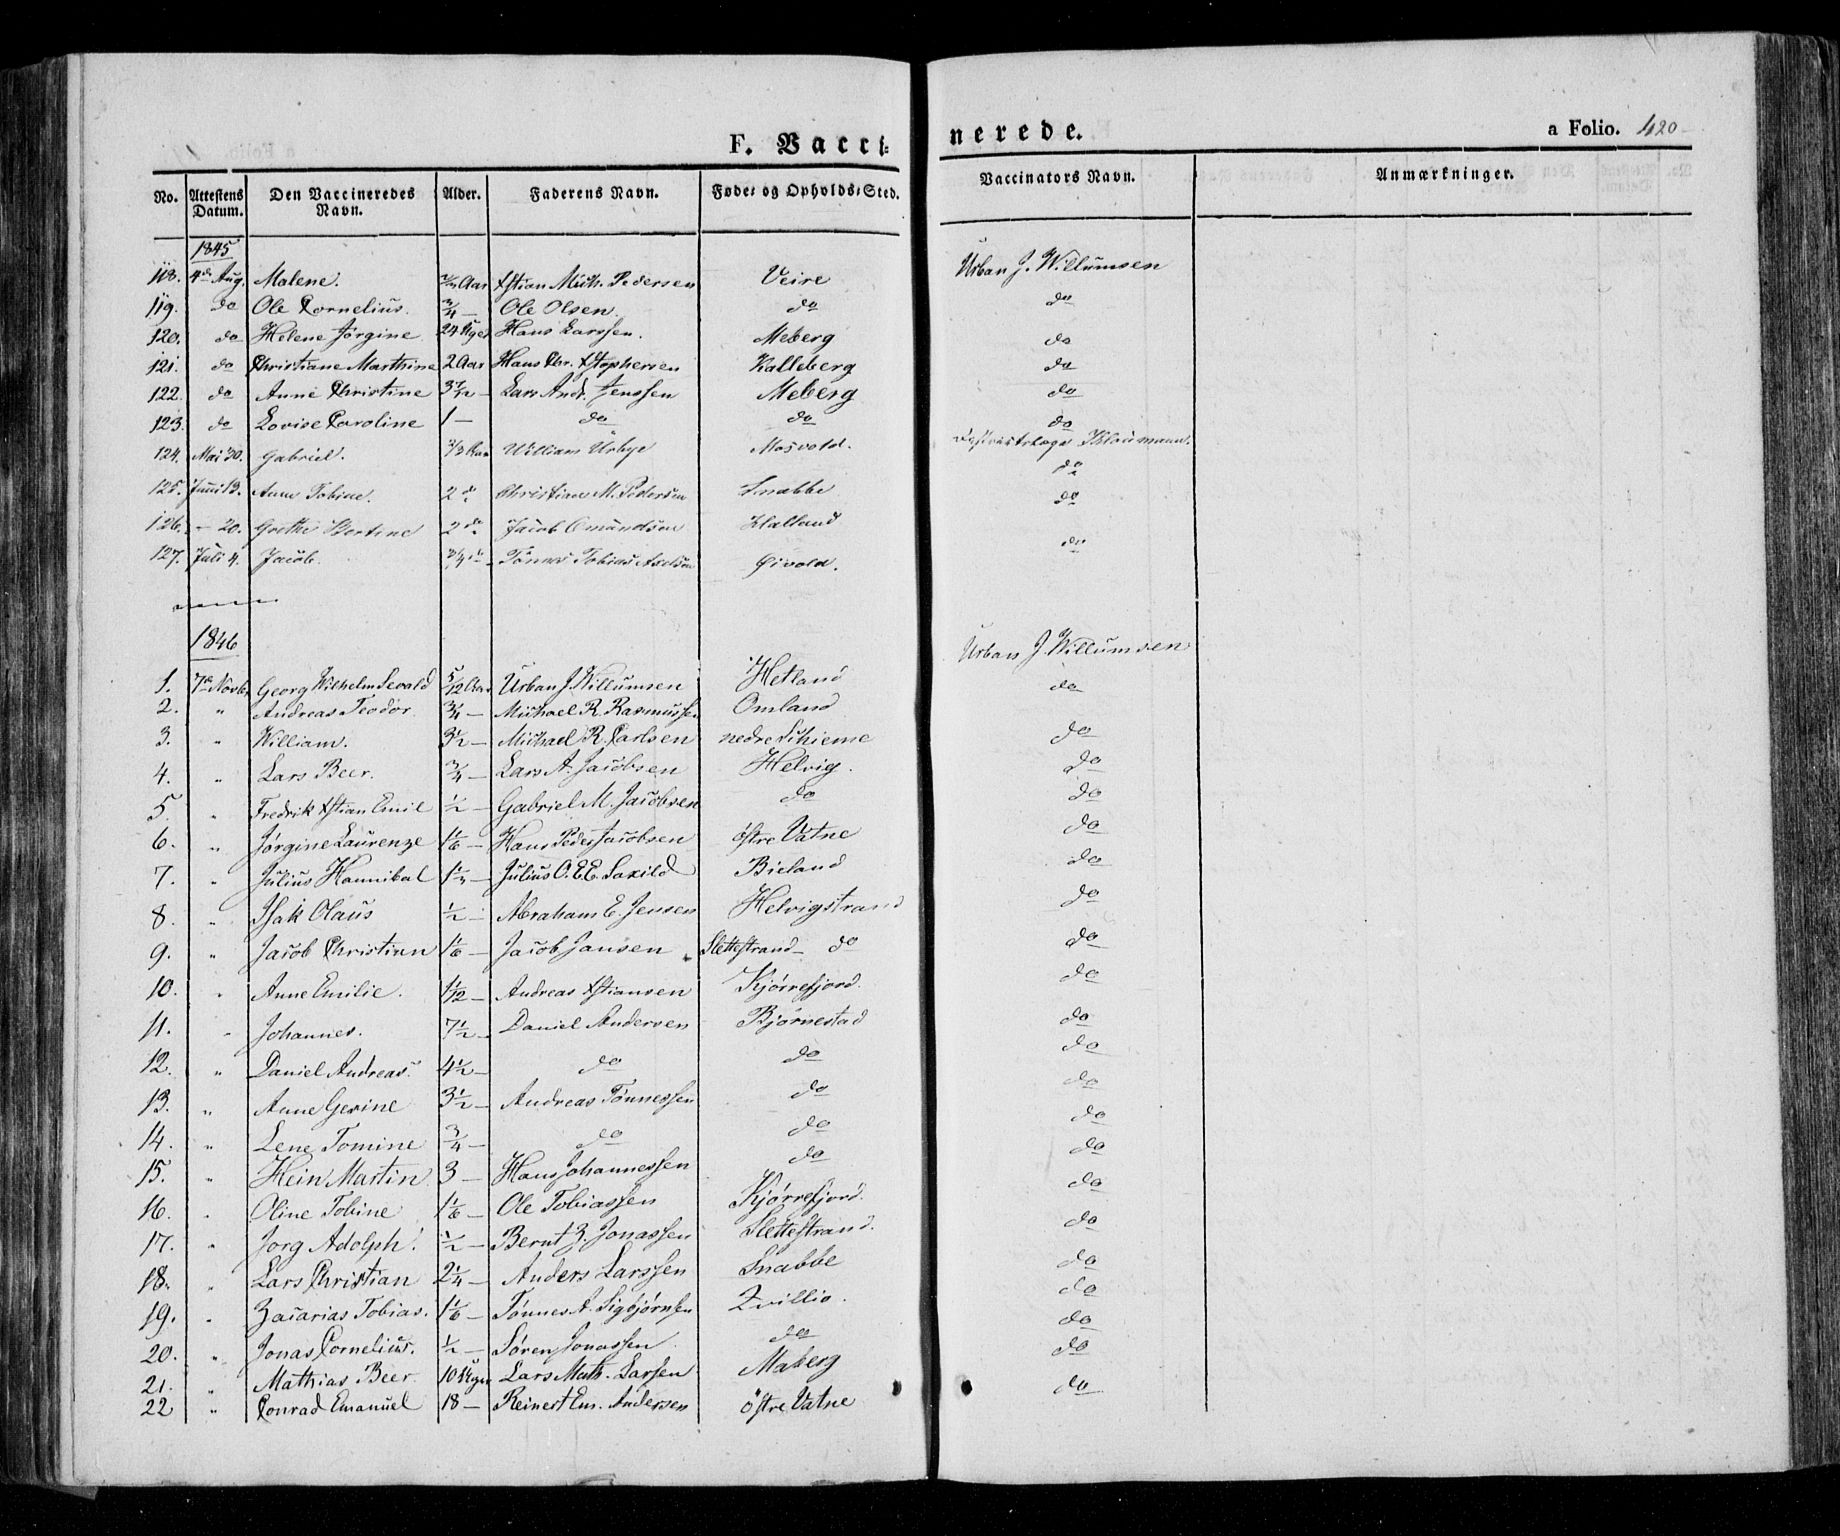 F. Vacci-
nerede.
a Folio. 420
No. | Attestens Datum. | Den Vaccineredes Navn. | Alder. | Faderens Navn. | Føde- og Opholds-Sted. | Vaccinators Navn. | Anmærkninger.
1845
118. 4de Aug. Malene. Aar Xstian Mich. Pedersen Veire Urban J. Willumsen
119. do Ole Cornelius. 3/4 — Ole Olsen. do do
120. do Helene Jørgine 24 Uger Hans Larssen. Meberg do
121. do Christiane Marthine 2 Aar Hans Chr. Xstophersen Kalleberg do
122. do Anne Christine 3 1/2 — Lars Andr. Jenssen Meberg do
123. do Lovise Caroline 1 — do do do
124. Mai 30. Gabriel. 2/3 Aar William Urbye Mosvold. Districtslæge Klaumann.
125. Juni 13. Anne Tobine. 2 do Christian M. Pedersen Snabbe do
126. — 20. Grethe Bertine 2 do Jacob Omundsen Halland do
127. Juli 4. Jacob. 3/4 do Tønnes Tobias Axelsen Øivold. do
1846
1. 7de Novbr Georg Wilhelm Sevald 5/12 Aar Urban J. Willumsen Hetland Urban J. Willumsen
2. " Andreas Teodor. 3/4 — Michael R. Rasmussen Omland do
3. " William. 3 1/2 — Michael R. Carlsen nedre Skieme do
4. " Lars Beer. 3/4 — Lars A. Jacobsen Helvig. do
5. " Fredrik Xstian Emil 1/2 — Gabriel M. Jacobsen do do
6. " Jørgine Laurenze 1 1/6 — Hans Peder Jacobsen östre Vatne do
7. " Julius Hannibal 1 1/2 — Julius O. E. E. Saxild Bieland do
8. " Isak Olaus 1/2 — Abraham E. Jensen Helvigstrand do
9. " Jacob Christian 1 1/6 — Jacob Jansen Slettestrand — do do
10. " Anne Emilie. 1 1/12 — Andreas Xstiansen Kjørrefjord. do
11. " Johannes. 7 1/2 — Daniel Andersen Bjørnestad do
12. " Daniel Andreas. 4 1/2 — do do do
13. " Anne Gerine 3 1/2 — Andreas Tønnessen do do
14. " Lene Tomine 3/4 — do do do
15. " Hein Martin 3 — Hans Johannessen do do
16. " Oline Tobine 1 1/6 — Ole Tobiassen Kjørrefjord. do
17. " Jørg Adolph. 1/2 — Bernt Z. Jonassen Slettestrand. do
18. " Lars Christian 2 1/4 — Anders Larssen Snabbe do
19. " Zacarias Tobias. 1 1/6 — Tønnes A. Sigbjørnsen Qvillio. do
20. " Jonas Cornelius. 1/2 — Søren Jonassen do do
21. " Mathias Beer. 10 Uger Lars Math. Larsen Maberg do
22 " Conrad Emanuel 18 — Reinert Em. Andersen östre Vatne do